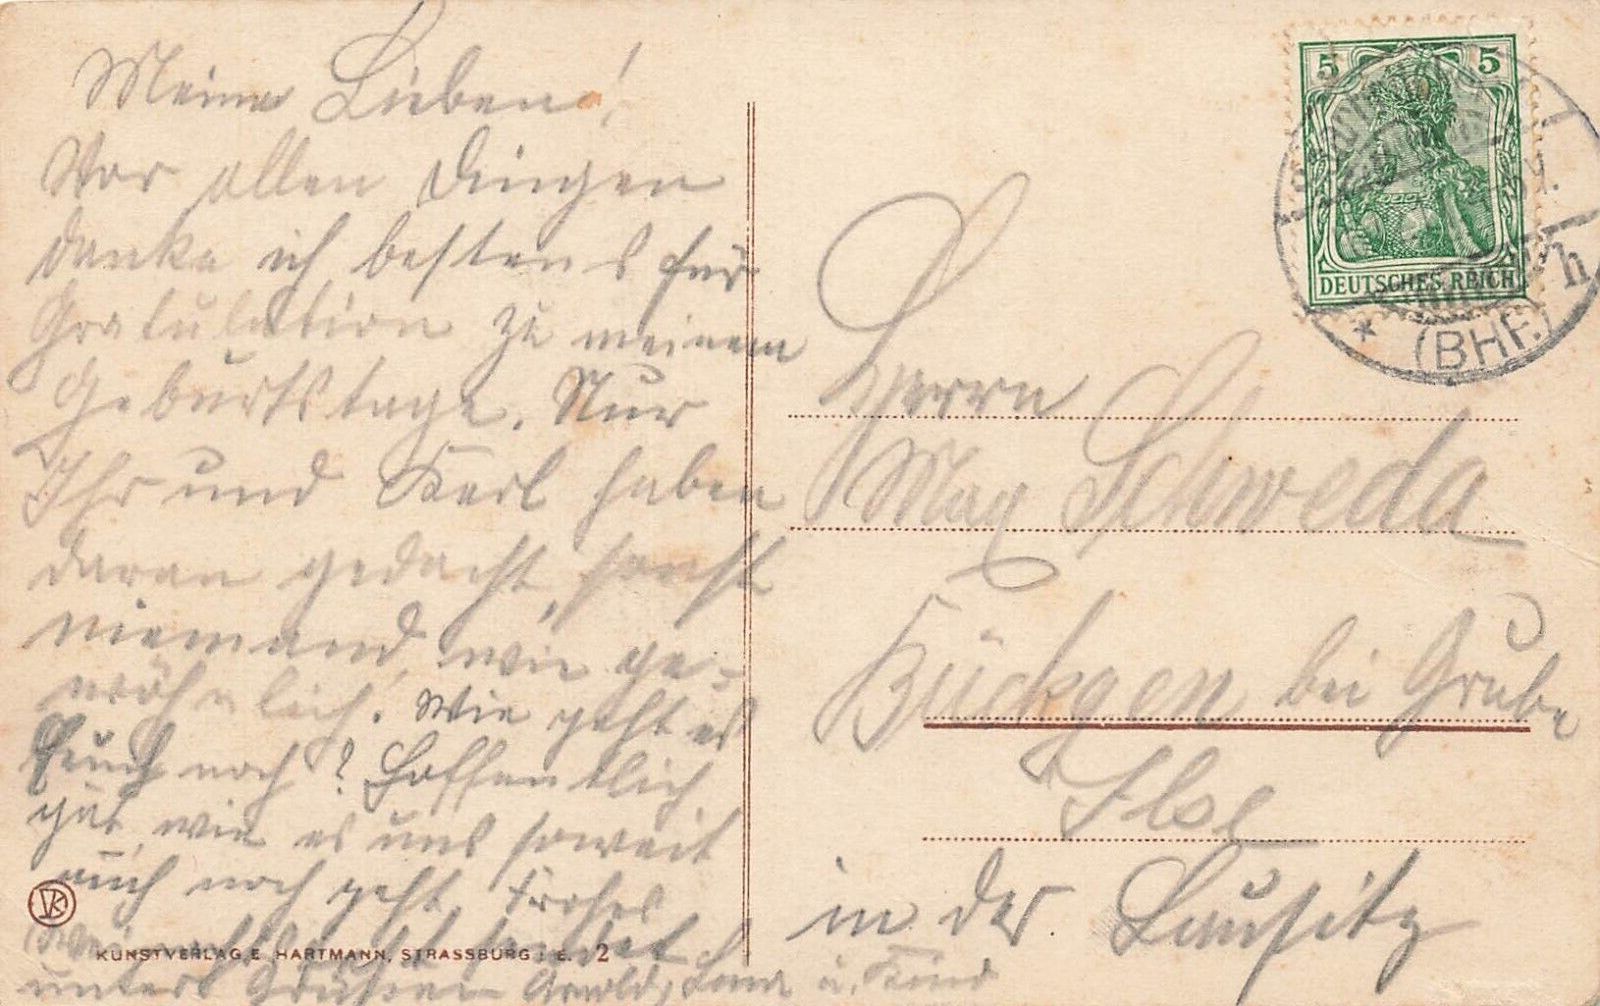 Meine Lieben!
Vor allen Dingen
danke ich bestens für
Gratulation zu meinem
Geburtstage. Nur
Ihr und Karl haben
daran gedacht, sonst
niemand, wie ge=
wöhnlich. Wie geht es
Euch noch? Hoffentlich
gut, wie es uns soweit
auch noch geht. Frohes
Weihnachtsfest sendet
unter Grüßen Arnold, u. Kind
VK
KUNSTVERLAG E. HARTMANN, STRASSBURG i. E. 2
5 5
DEUTSCHES REICH
h
* (BHF.)
Herrn
Max Schweda
Bückgen bei Grube
Ilse
in der Lausitz